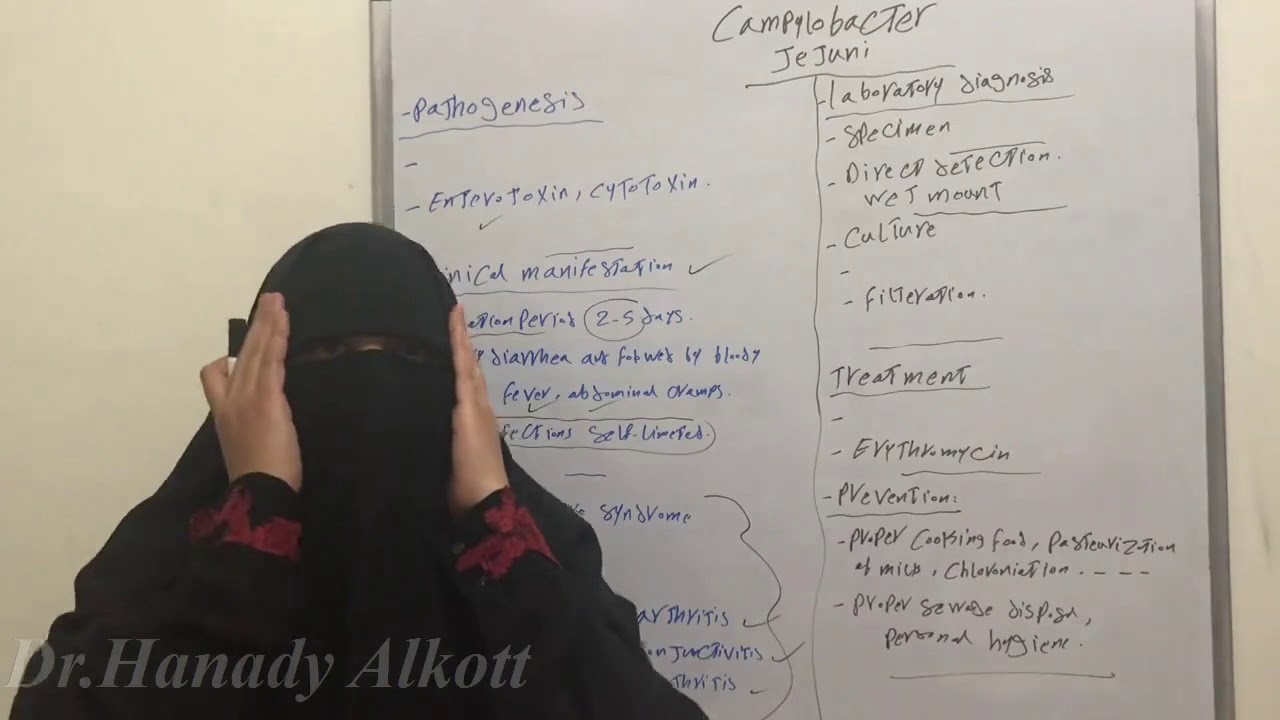 Campylobacter
Jejuni
- Pathogenesis
-
- Enterotoxin, cytotoxin.
manifestation
Period 2-5 days.
diarrhea by bloody
fever, abdominal cramps.
Self-limeted.
syndrome
- Laboratory diagnosis
- Specimen
- Direct detection.
wet mount
- Culture
-
- Filteration.
Treatment
-
- Erythromycin
- Prevention:
- Proper cooking food, Pasteurization
of milk, Chloroniation . - - -
- Proper sewage disposal,
Personal hygiene.
Dr.Hanady Alkott